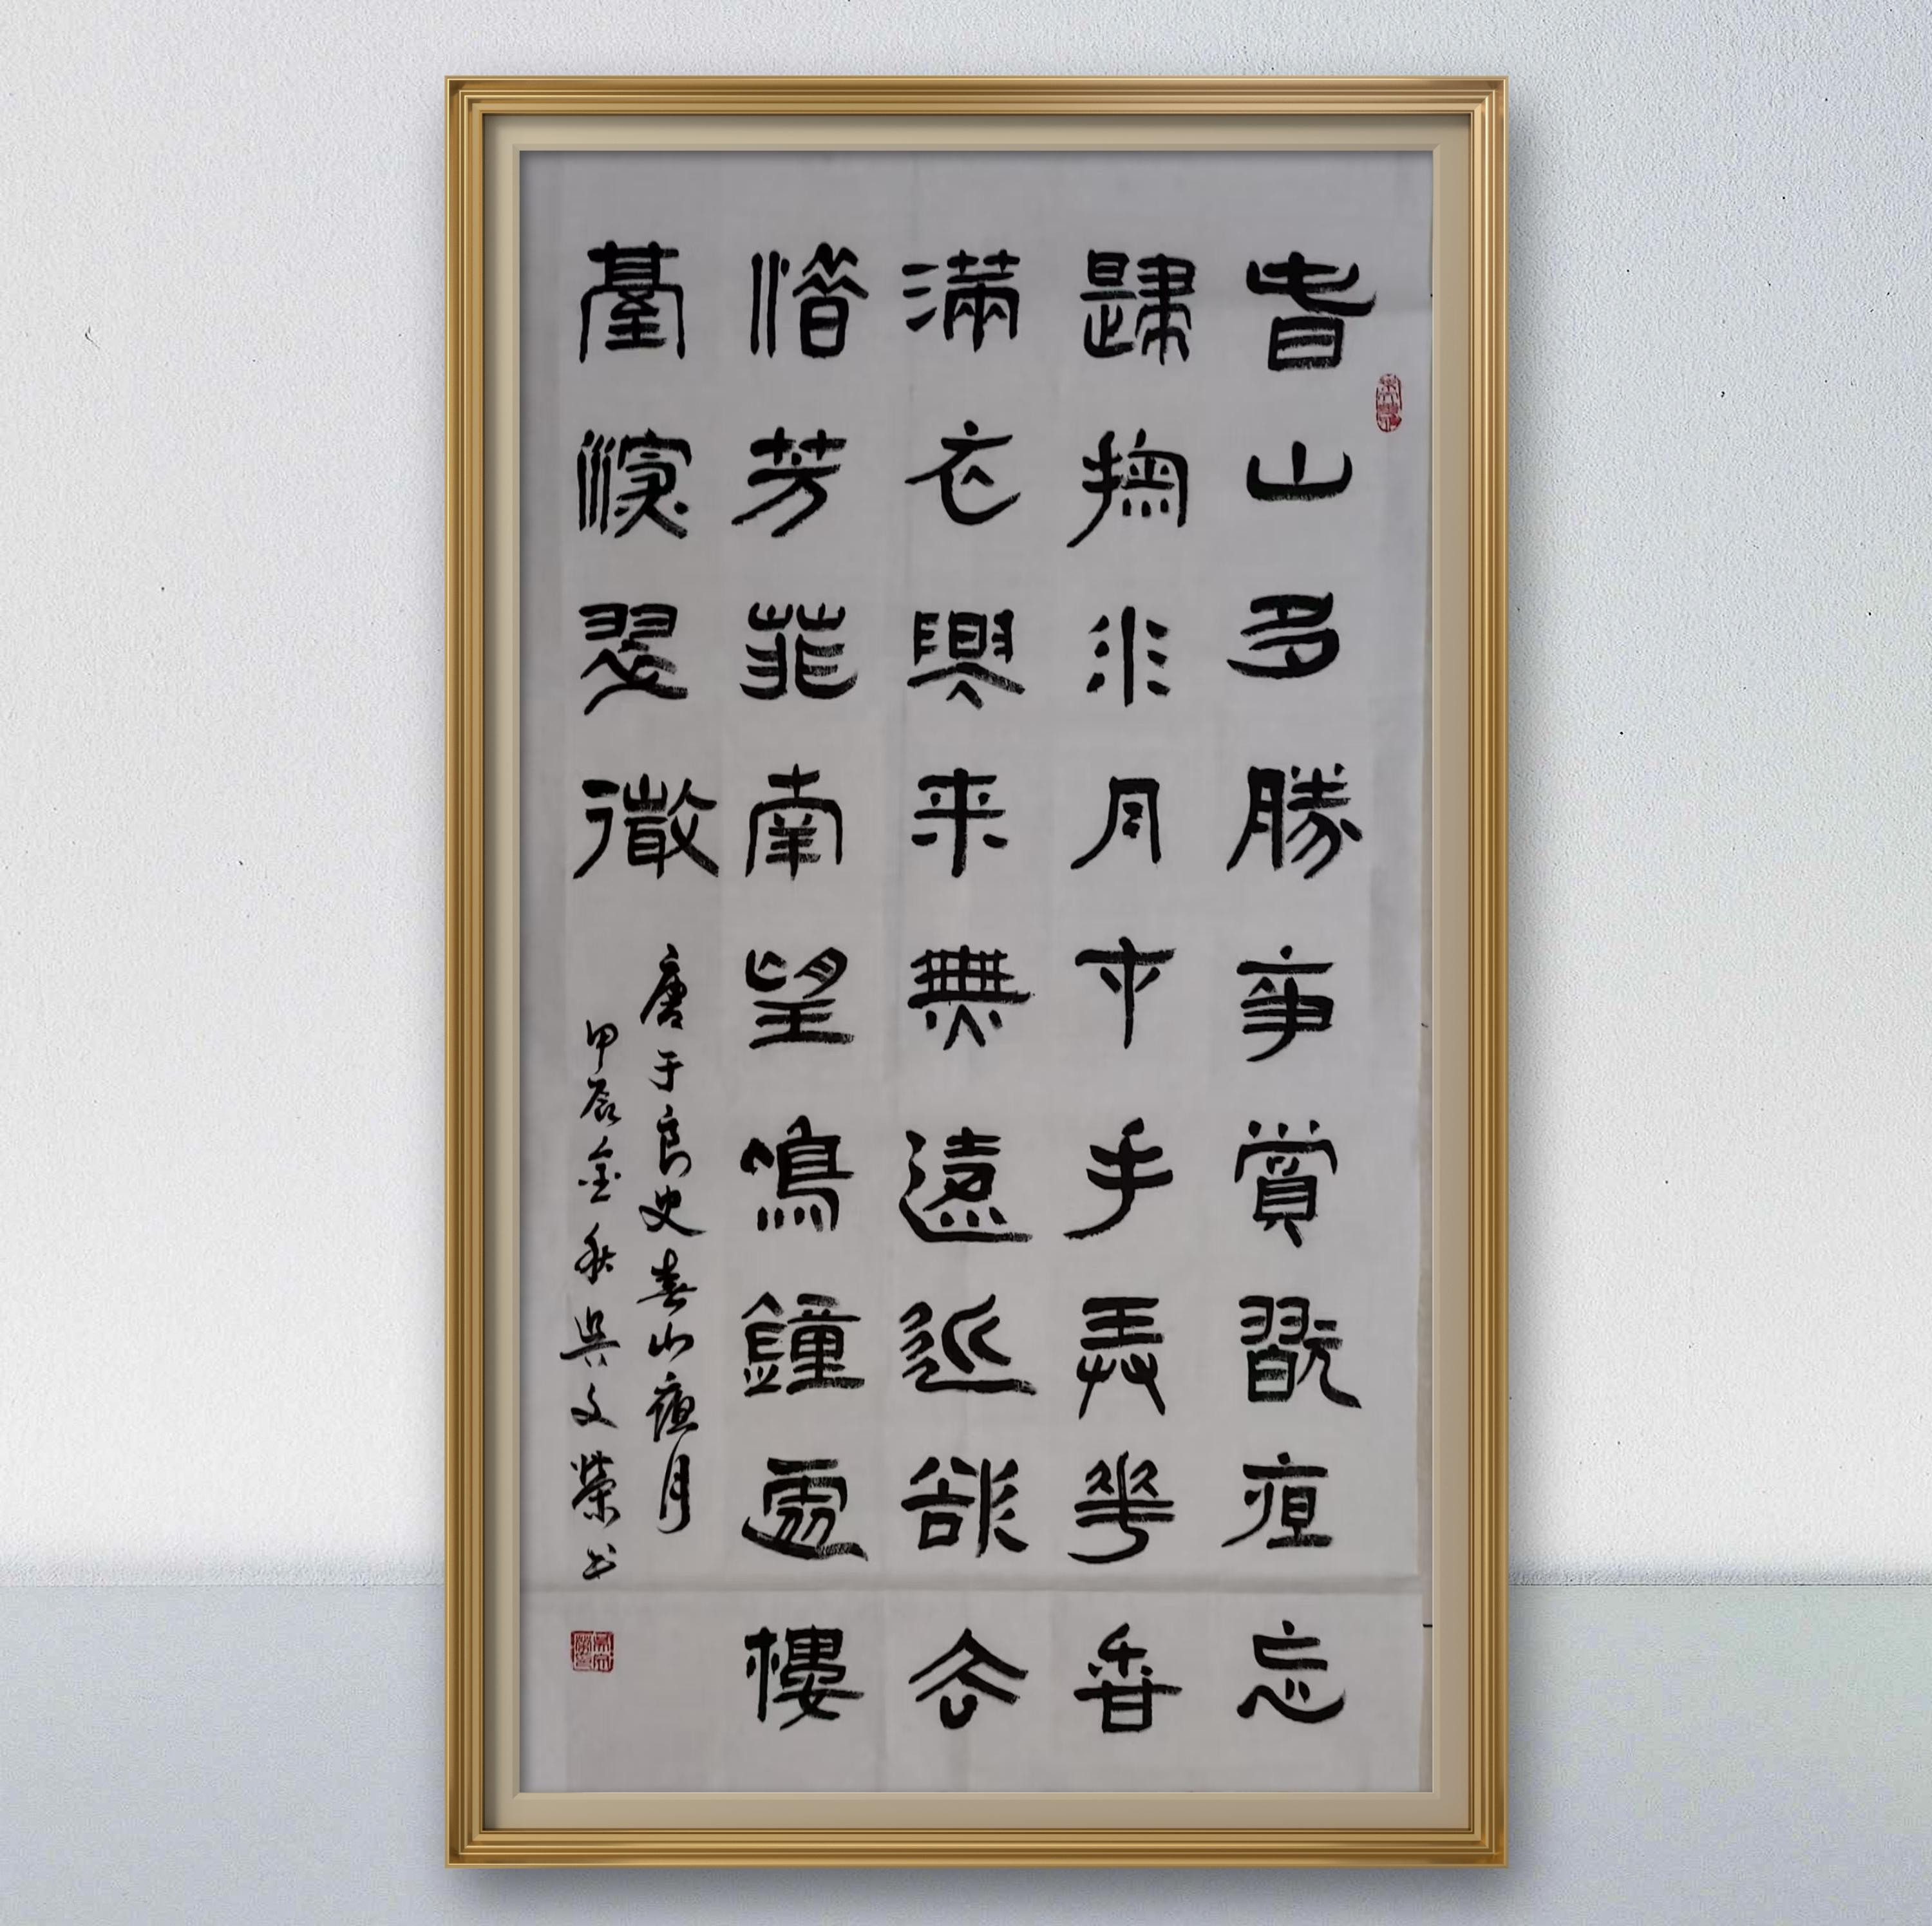 春山多勝事賞翫夜忘
歸掬水月在手弄花香
滿衣興来無遠近欲去
惜芳菲南望鳴鐘處樓
臺深翠微
唐于良史春山夜月
甲辰金秋吴文榮书